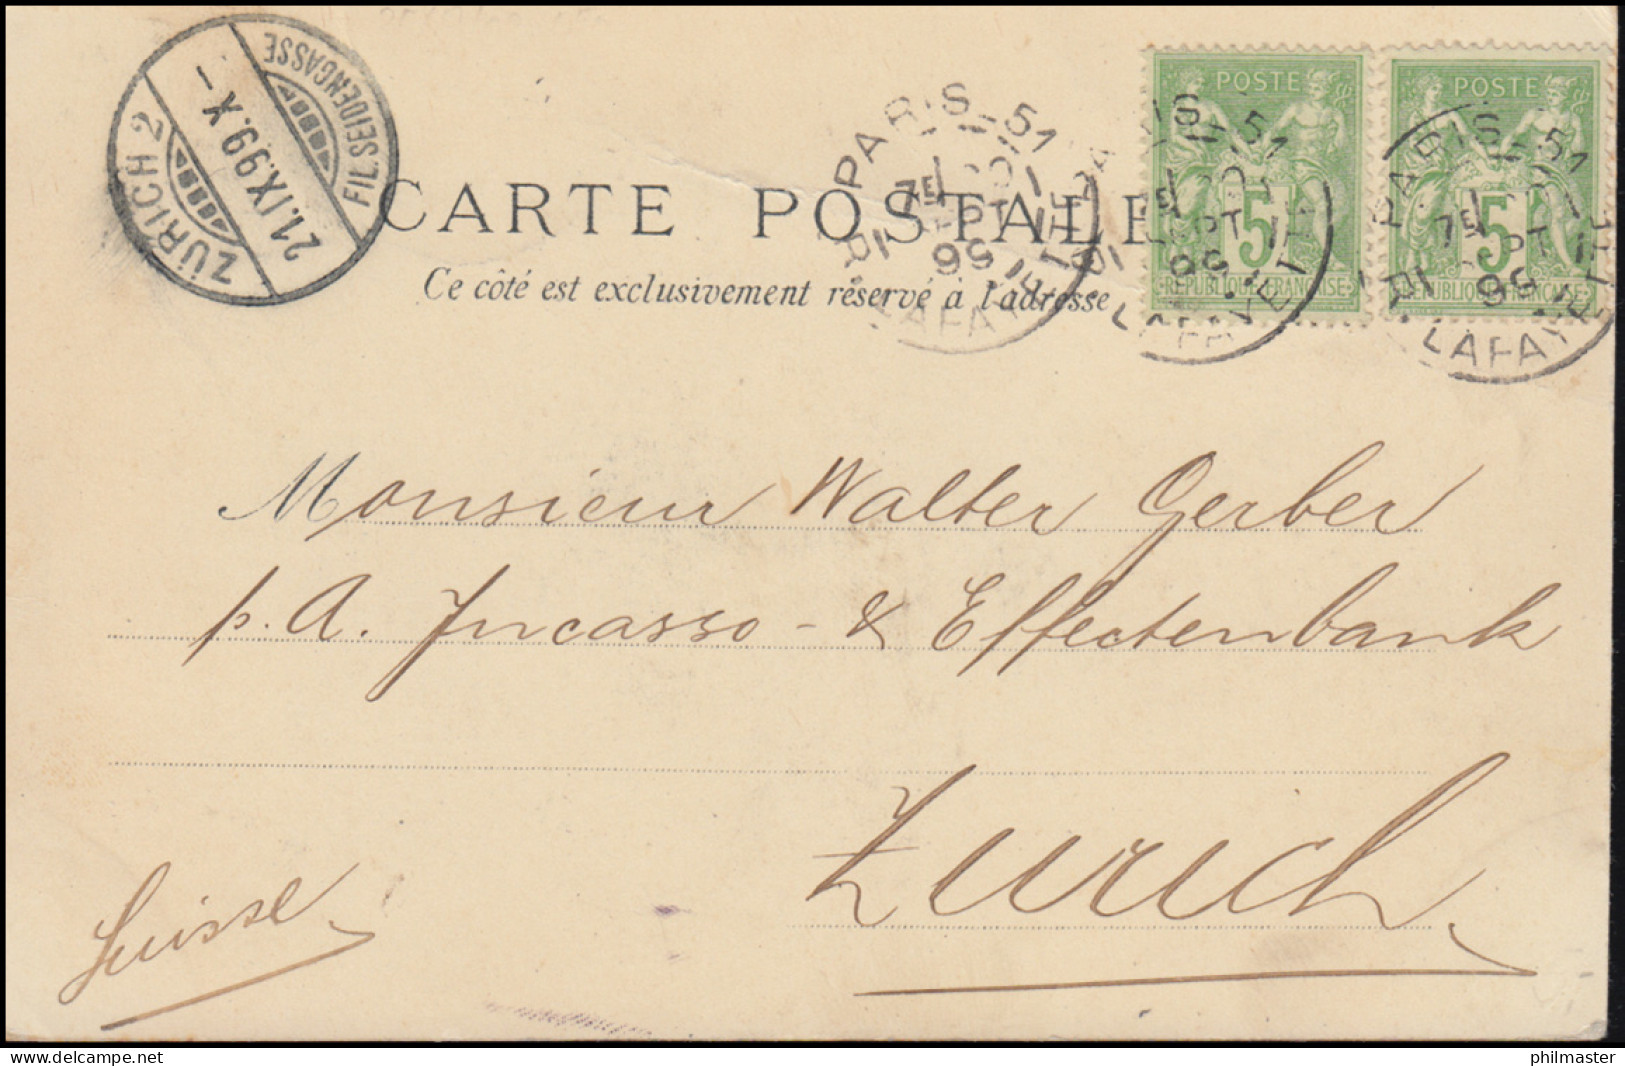 ZÜRICH 2
21.IX.99.X-
FIL. SEIDENGASSE
PARIS-51
LAFAYETTE
POSTE
5
REPUBLIQUE FRANÇAISE
POSTE
5
REPUBLIQUE FRANÇAISE
PARIS-51
7E
SEPT
99
R. LAFAYETTE
CARTE POSTALE
Ce côté est exclusivement réservé à l'adresse
Monsieur Walter Gerber
p. A. Incasso- & Effectenbank
Zurich
Suisse
delcampe.net
philmaster